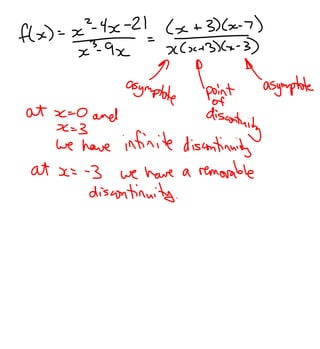 f(x) = x²-4x-21 / x³-9x = (x+3)(x-7) / x(x+3)(x-3)
asymptote point of discontinuity asymptote
at x=0 and
x=3
we have infinite discontinuity
at x= -3 we have a removable
discontinuity.